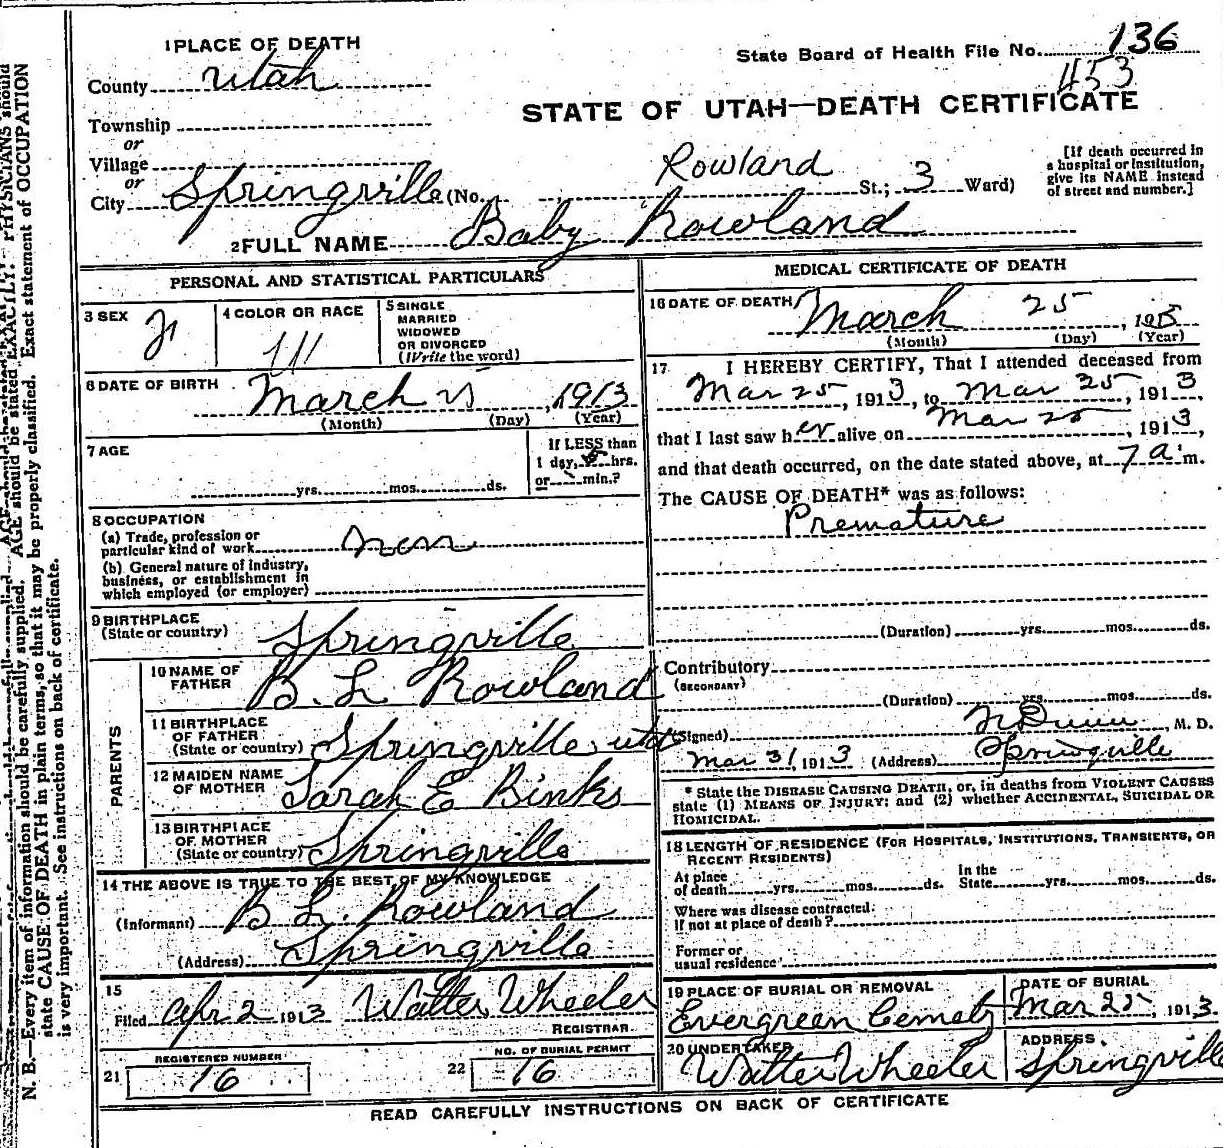 1 PLACE OF DEATH
State Board of Health File No. 136
453
County Utah
STATE OF UTAH—DEATH CERTIFICATE
Township
or
Village
or
City Springville (No. , Rowland St.; 3 Ward)
[If death occurred in a hospital or institution, give its NAME instead of street and number.]
2 FULL NAME Baby Rowland
PERSONAL AND STATISTICAL PARTICULARS
3 SEX F
4 COLOR OR RACE W
5 SINGLE
MARRIED
WIDOWED
OR DIVORCED
(Write the word)
6 DATE OF BIRTH March 25, 1913
(Month) (Day) (Year)
7 AGE
If LESS than
1 day, hrs.
or min.?
yrs. mos. ds.
8 OCCUPATION
(a) Trade, profession or
particular kind of work
(b) General nature of industry,
business, or establishment in
which employed (or employer)
9 BIRTHPLACE
(State or country) Springville
PARENTS
10 NAME OF
FATHER B. L Rowland
11 BIRTHPLACE
OF FATHER
(State or country) Springville Utah
12 MAIDEN NAME
OF MOTHER Sarah E Binks
13 BIRTHPLACE
OF MOTHER
(State or country) Springville
14 THE ABOVE IS TRUE TO THE BEST OF MY KNOWLEDGE
(Informant) B L. Rowland
(Address) Springville
15
Filed Apr 2 1913 Walter Wheeler
REGISTRAR
REGISTERED NUMBER
21 16
NO. OF BURIAL PERMIT
22 16
MEDICAL CERTIFICATE OF DEATH
16 DATE OF DEATH March 25, 1913
(Month) (Day) (Year)
17 I HEREBY CERTIFY, That I attended deceased from
Mar 25, 1913, to Mar 25, 1913,
that I last saw her alive on Mar 25, 1913,
and that death occurred, on the date stated above, at 7 a.m.
The CAUSE OF DEATH* was as follows:
Premature
(Duration) yrs. mos. ds.
Contributory
(SECONDARY)
(Duration) yrs. mos. ds.
(Signed) Dunn, M. D.
Mar 31, 1913 (Address) Springville
* State the DISEASE CAUSING DEATH, or, in deaths from VIOLENT CAUSES
state (1) MEANS OF INJURY; and (2) whether ACCIDENTAL, SUICIDAL OR
HOMICIDAL.
18 LENGTH OF RESIDENCE (FOR HOSPITALS, INSTITUTIONS, TRANSIENTS, OR
RECENT RESIDENTS)
At place
of death yrs. mos. ds.
In the
State yrs. mos. ds.
Where was disease contracted
If not at place of death?
Former or
usual residence
19 PLACE OF BURIAL OR REMOVAL
Evergreen Cemetry
DATE OF BURIAL
Mar 25, 1913.
20 UNDERTAKER
Walter Wheeler
ADDRESS.
Springville
READ CAREFULLY INSTRUCTIONS ON BACK OF CERTIFICATE
N. B.—Every item of information should be carefully supplied. AGE should be stated EXACTLY. PHYSICIANS should
state CAUSE OF DEATH in plain terms, so that it may be properly classified. Exact statement of OCCUPATION
is very important. See instructions on back of certificate.